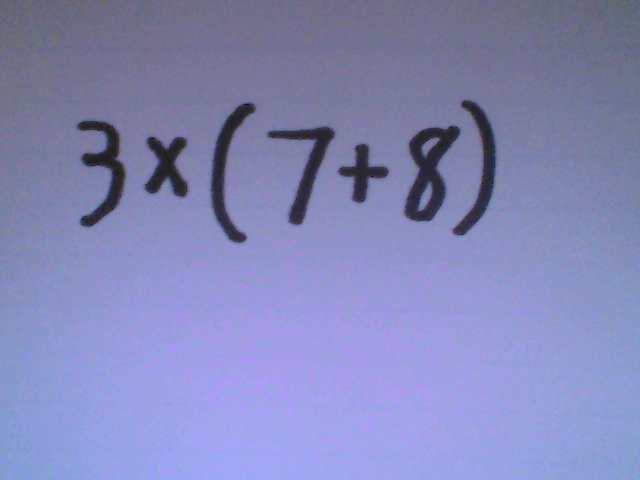 3×(7+8)